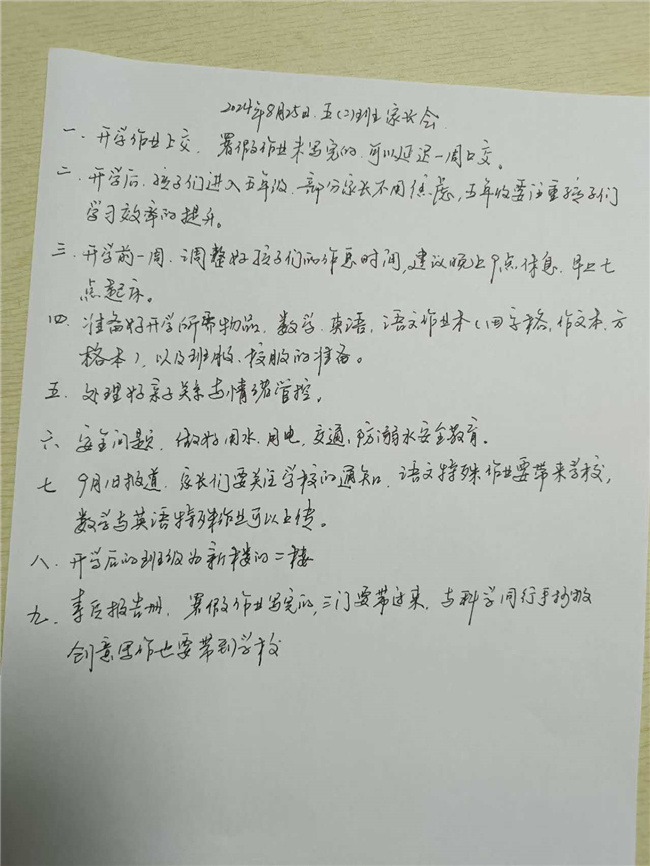 2024年8月25日.五(2)班家长会.
一.开学作业上交.暑假作业未写完的.可以延迟一周上交。
二.开学后.孩子们进入五年级.部分家长不用焦虑,五年级要注重孩子们
学习效率的提升。
三.开学前一周.调整好孩子们的作息时间,建议晚上9点休息.早上七
点起床。
四.准备好开学所需物品.数学.英语.语文作业本(田字格,作文本.方
格本),以及班服.校服的准备。
五.处理好亲子关系与情绪管控。
六 安全问题.做好用水.用电.交通,防溺水安全教育。
七 9月1日报道.家长们要关注学校的通知.语文特殊作业要带来学校,
数学与英语特殊作业可以上传。
八.开学后的班级为新楼的二楼
九.报告册.暑假作业写完的,三门要带过来.与科学同行手抄报
创意写作也要带到学校